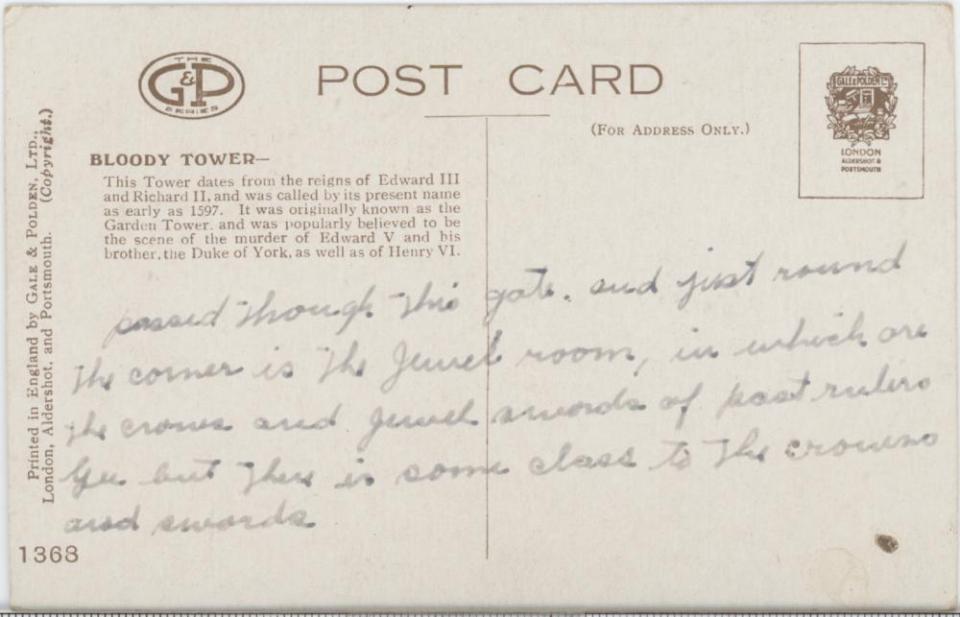 THE
G&P
SERIES
POST CARD
(FOR ADDRESS ONLY.)
GALE & POLDEN LTD
LONDON
ALDERSHOT &
PORTSMOUTH
BLOODY TOWER—
This Tower dates from the reigns of Edward III
and Richard II, and was called by its present name
as early as 1597. It was originally known as the
Garden Tower, and was popularly believed to be
the scene of the murder of Edward V and his
brother, the Duke of York, as well as of Henry VI.
Printed in England by GALE & POLDEN, LTD.,
London, Aldershot, and Portsmouth. (Copyright.)
passed though this gate. and just round
the corner is the Jewel room, in which are
the crowns and Jewel swords of past rulers
Gee but there is some class to the crowns
and swords
1368